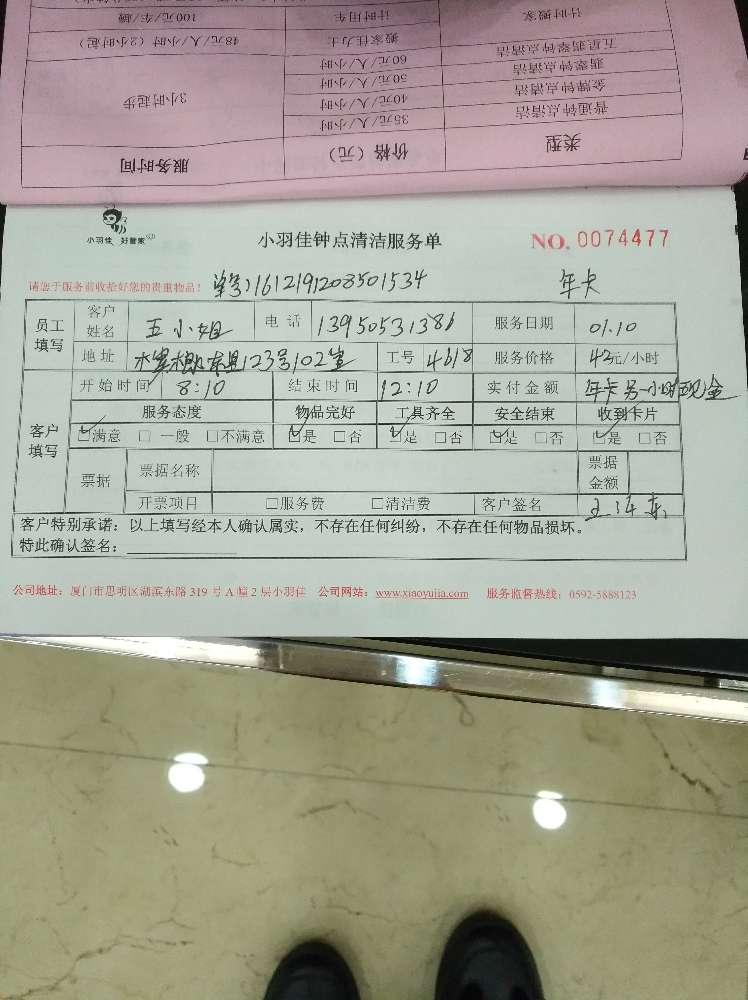 计时搬家 计时用车 100元/车/趟
搬家壮力士 48元/人/小时（2小时起）
五星翡翠钟点清洁 60元/人/小时
翡翠钟点清洁 50元/人/小时
金牌钟点清洁 40元/人/小时 3小时起步
普通钟点清洁 35元/人/小时
类型 价格（元） 服务时间
小羽佳 好管家
小羽佳钟点清洁服务单
NO. 0074477
请您于服务前收拾好您的贵重物品！
单号)1612191208501534 年卡
员工填写 客户姓名 王小姐 电话 13950531386 服务日期 01.10
地址 123号102室 工号 4618 服务价格 42元/小时
客户填写 开始时间 8:10 结束时间 12:10 实付金额 年卡另一小时现金
服务态度 物品完好 工具齐全 安全结束 收到卡片
☑满意 □一般 □不满意 ☑是 □否 ☑是 □否 ☑是 □否 ☑是 □否
票据 票据名称 票据金额
开票项目 □服务费 □清洁费 客户签名
客户特别承诺：以上填写经本人确认属实，不存在任何纠纷，不存在任何物品损坏。
特此确认签名：
公司地址：厦门市思明区湖滨东路 319 号 A 幢 2 层小羽佳 公司网站：www.xiaoyujia.com 服务监督热线：0592-5888123